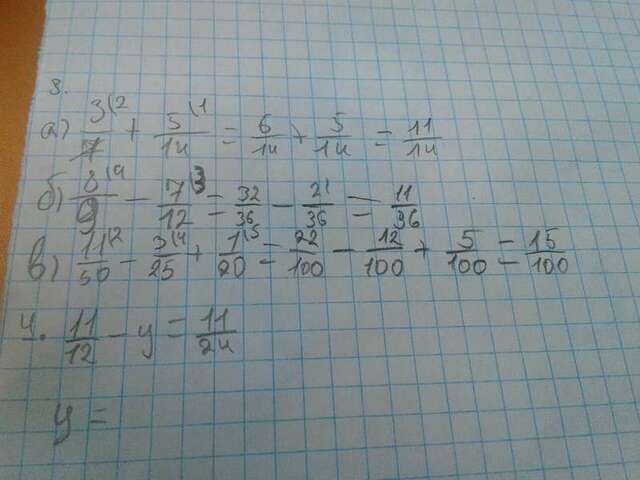 3.
а) 3/7 (2 + 5/14 (1 = 6/14 + 5/14 = 11/14
б) 8/9 (4 - 7/12 (3 = 32/36 - 21/36 = 11/36
в) 11/50 (2 - 3/25 (4 + 1/20 (5 = 22/100 - 12/100 + 5/100 = 15/100
4. 11/12 - y = 11/24
y =